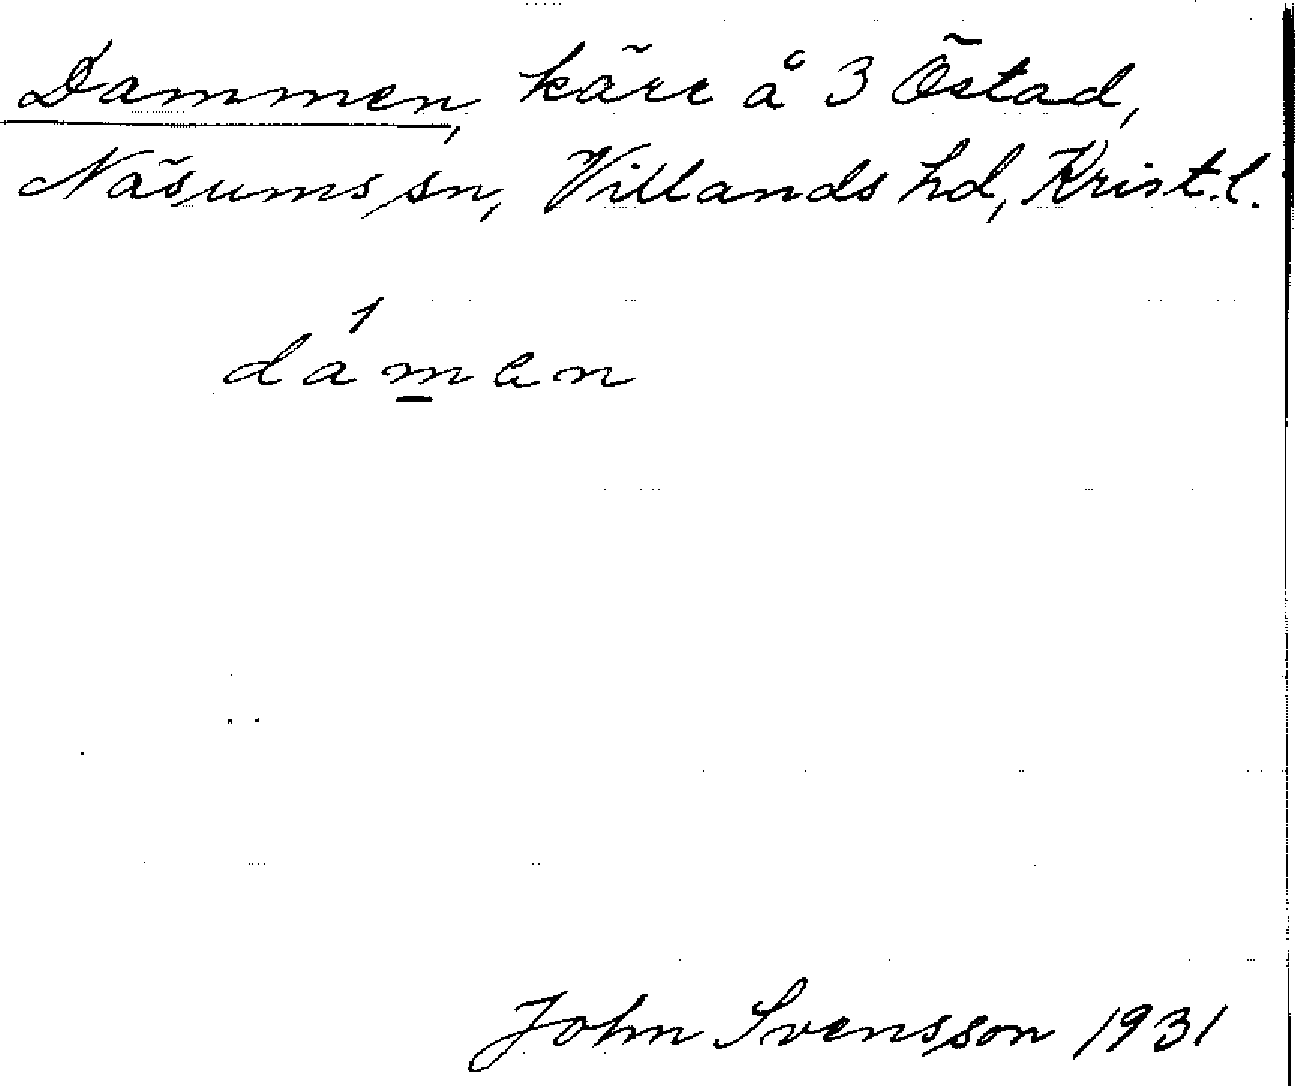 Dammen, kärr å 3 Östad,
Näsums sn, Villands hd, Krist. l.
1
damen
John Svensson 1931